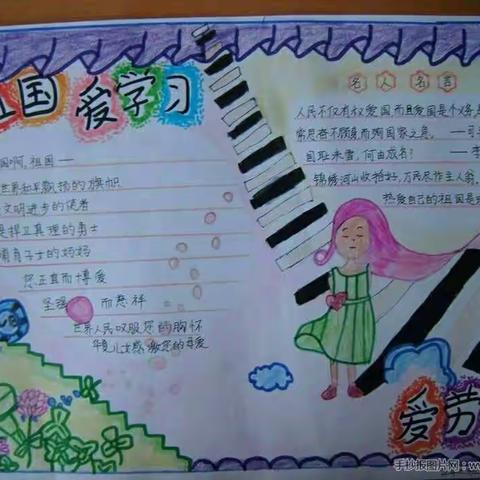 祖国 爱学习
国啊,祖国一
世界和平飘扬的旗帜
文明进步的使者
是捍卫真理的勇士
哺育子女的妈妈
您正直而博爱
坚强 而慈祥
世界人民叹服您的胸怀
华夏儿女感激您的母爱
名人名言
人民不仅有权爱国,而且爱国是个义务,
常思奋不顾身,而殉国家之急。 ——司
国耻未雪,何由成名? ——李
锦绣河山收拾好,万民尽作主人翁
热爱自己的祖国是
爱劳
手抄报图片网:www